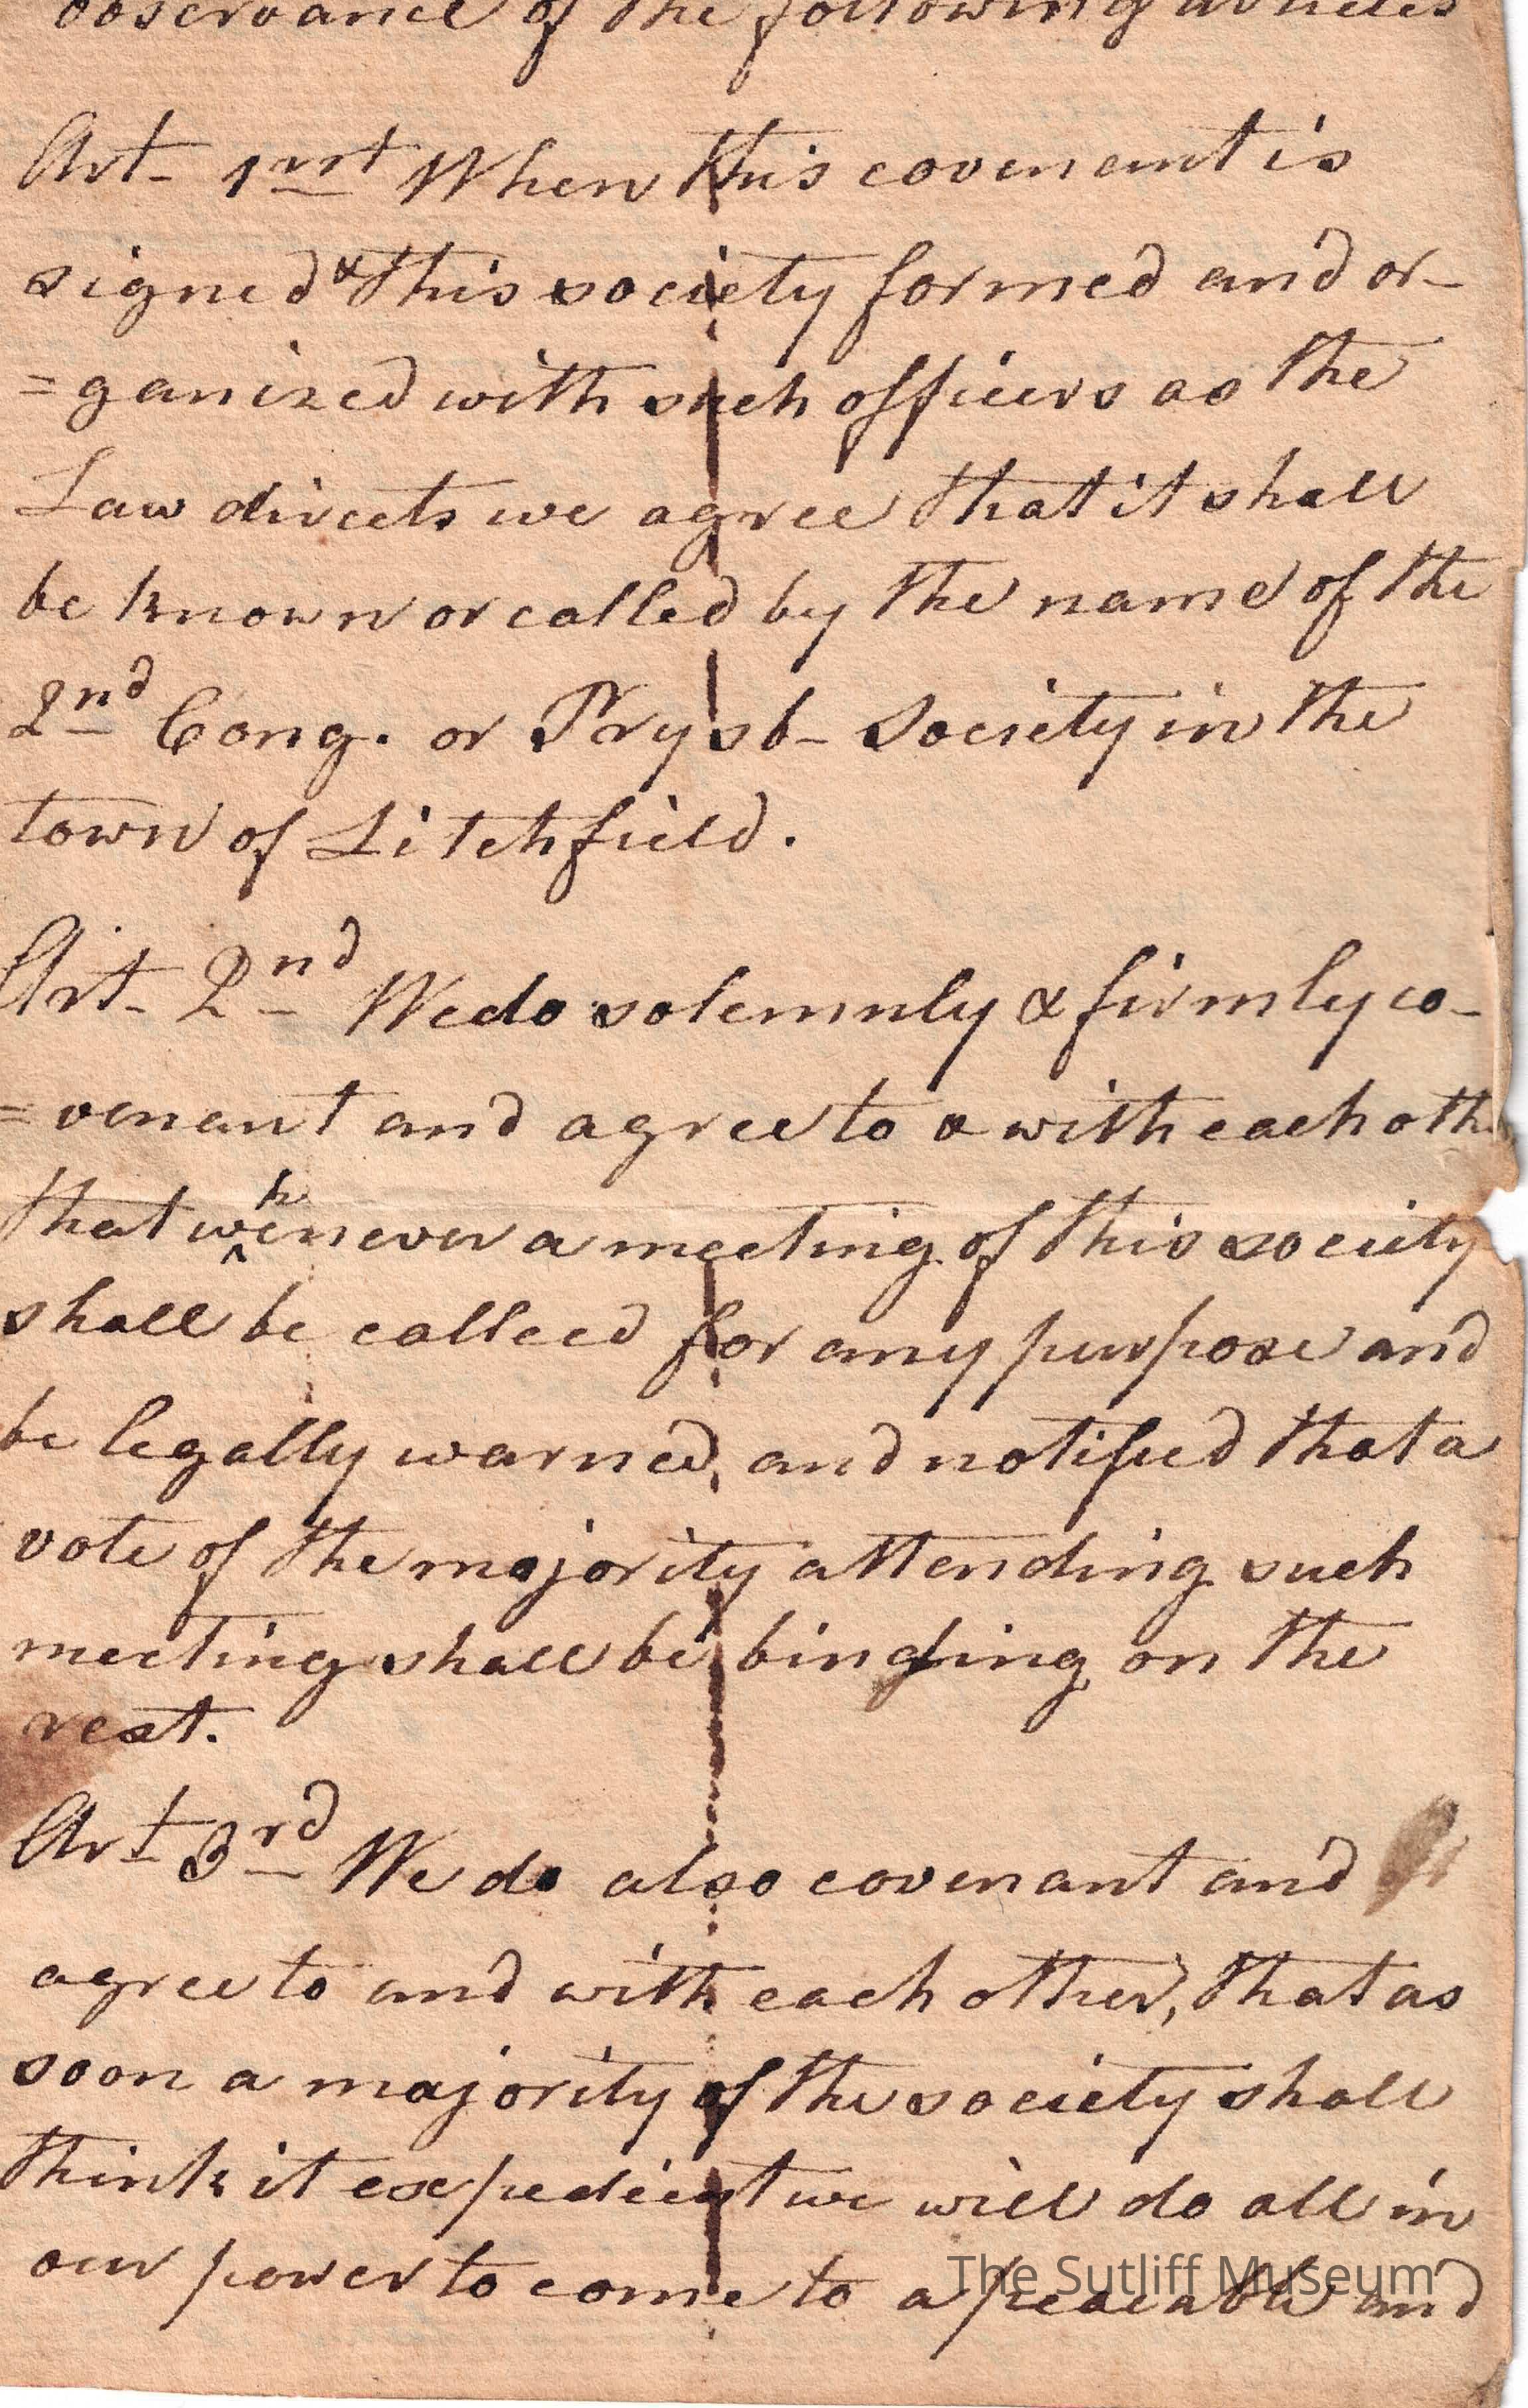 observance of the following articles
Art- 1rst When this covenant is
signed & this society formed and or-
=ganized with such officers as the
Law directs we agree that it shall
be known or called by the name of the
2nd Cong. or Prysb- Society in the
town of Litchfield.
Art- 2nd We do solemnly & firmly co-
=venant and agree to & with each oth
that whenever a meeting of this society
shall be calleed for any purpose and
be legally warned, and notified that a
vote of the majority attending such
meeting shall be binding on the
rest.
Art 3rd We do also covenant and
agree to and with each other, that as
soon a majority of the society shall
think it expedient we will do all in
our power to come to a peacable and
The Sutliff Museum